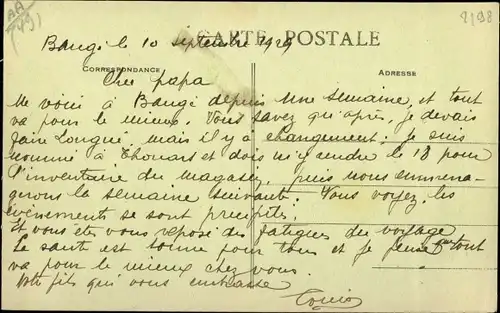 AA
749
2198
CARTE POSTALE
Baugé le 10 septembre 1929
CORRESPONDANCE
ADRESSE
Cher papa
Me voici à Baugé depuis une semaine, et tout
va pour le mieux. Vous savez qu'après, je devais
faire Longué, mais il y a changement; je suis
nommé à Thouars et dois m'y rendre le 18 pour
l'inventaire du magasin, puis nous emména-
gerons la semaine suivante. Vous voyez, les
évènements se sont précipités.
Et vous êtes vous reposé des fatigues du voyage
La santé est bonne pour tous et je pense que tout
va pour le mieux chez vous.
Votre fils qui vous embrasse
Louis